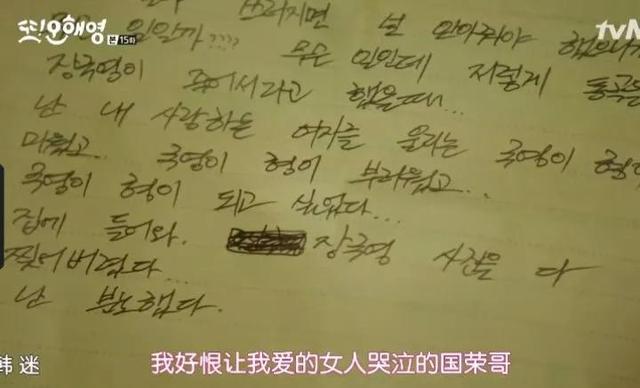 또!오해영
본 15화
tvN
쓰러지면 날 안아줘야
일일까????
무슨 일인데 저렇게 통곡을
장국영이 죽어서라고 했을때...
난 내 사랑하는 여자를 울리는 국영이 형이
미웠고... 국영이 형이 부러웠고...
국영이 형이 되고 싶었다...
집에 들어와. 장국영 사진을 다
찢어버렸다...
난 분노했다.
韩迷
我好恨让我爱的女人哭泣的国荣哥